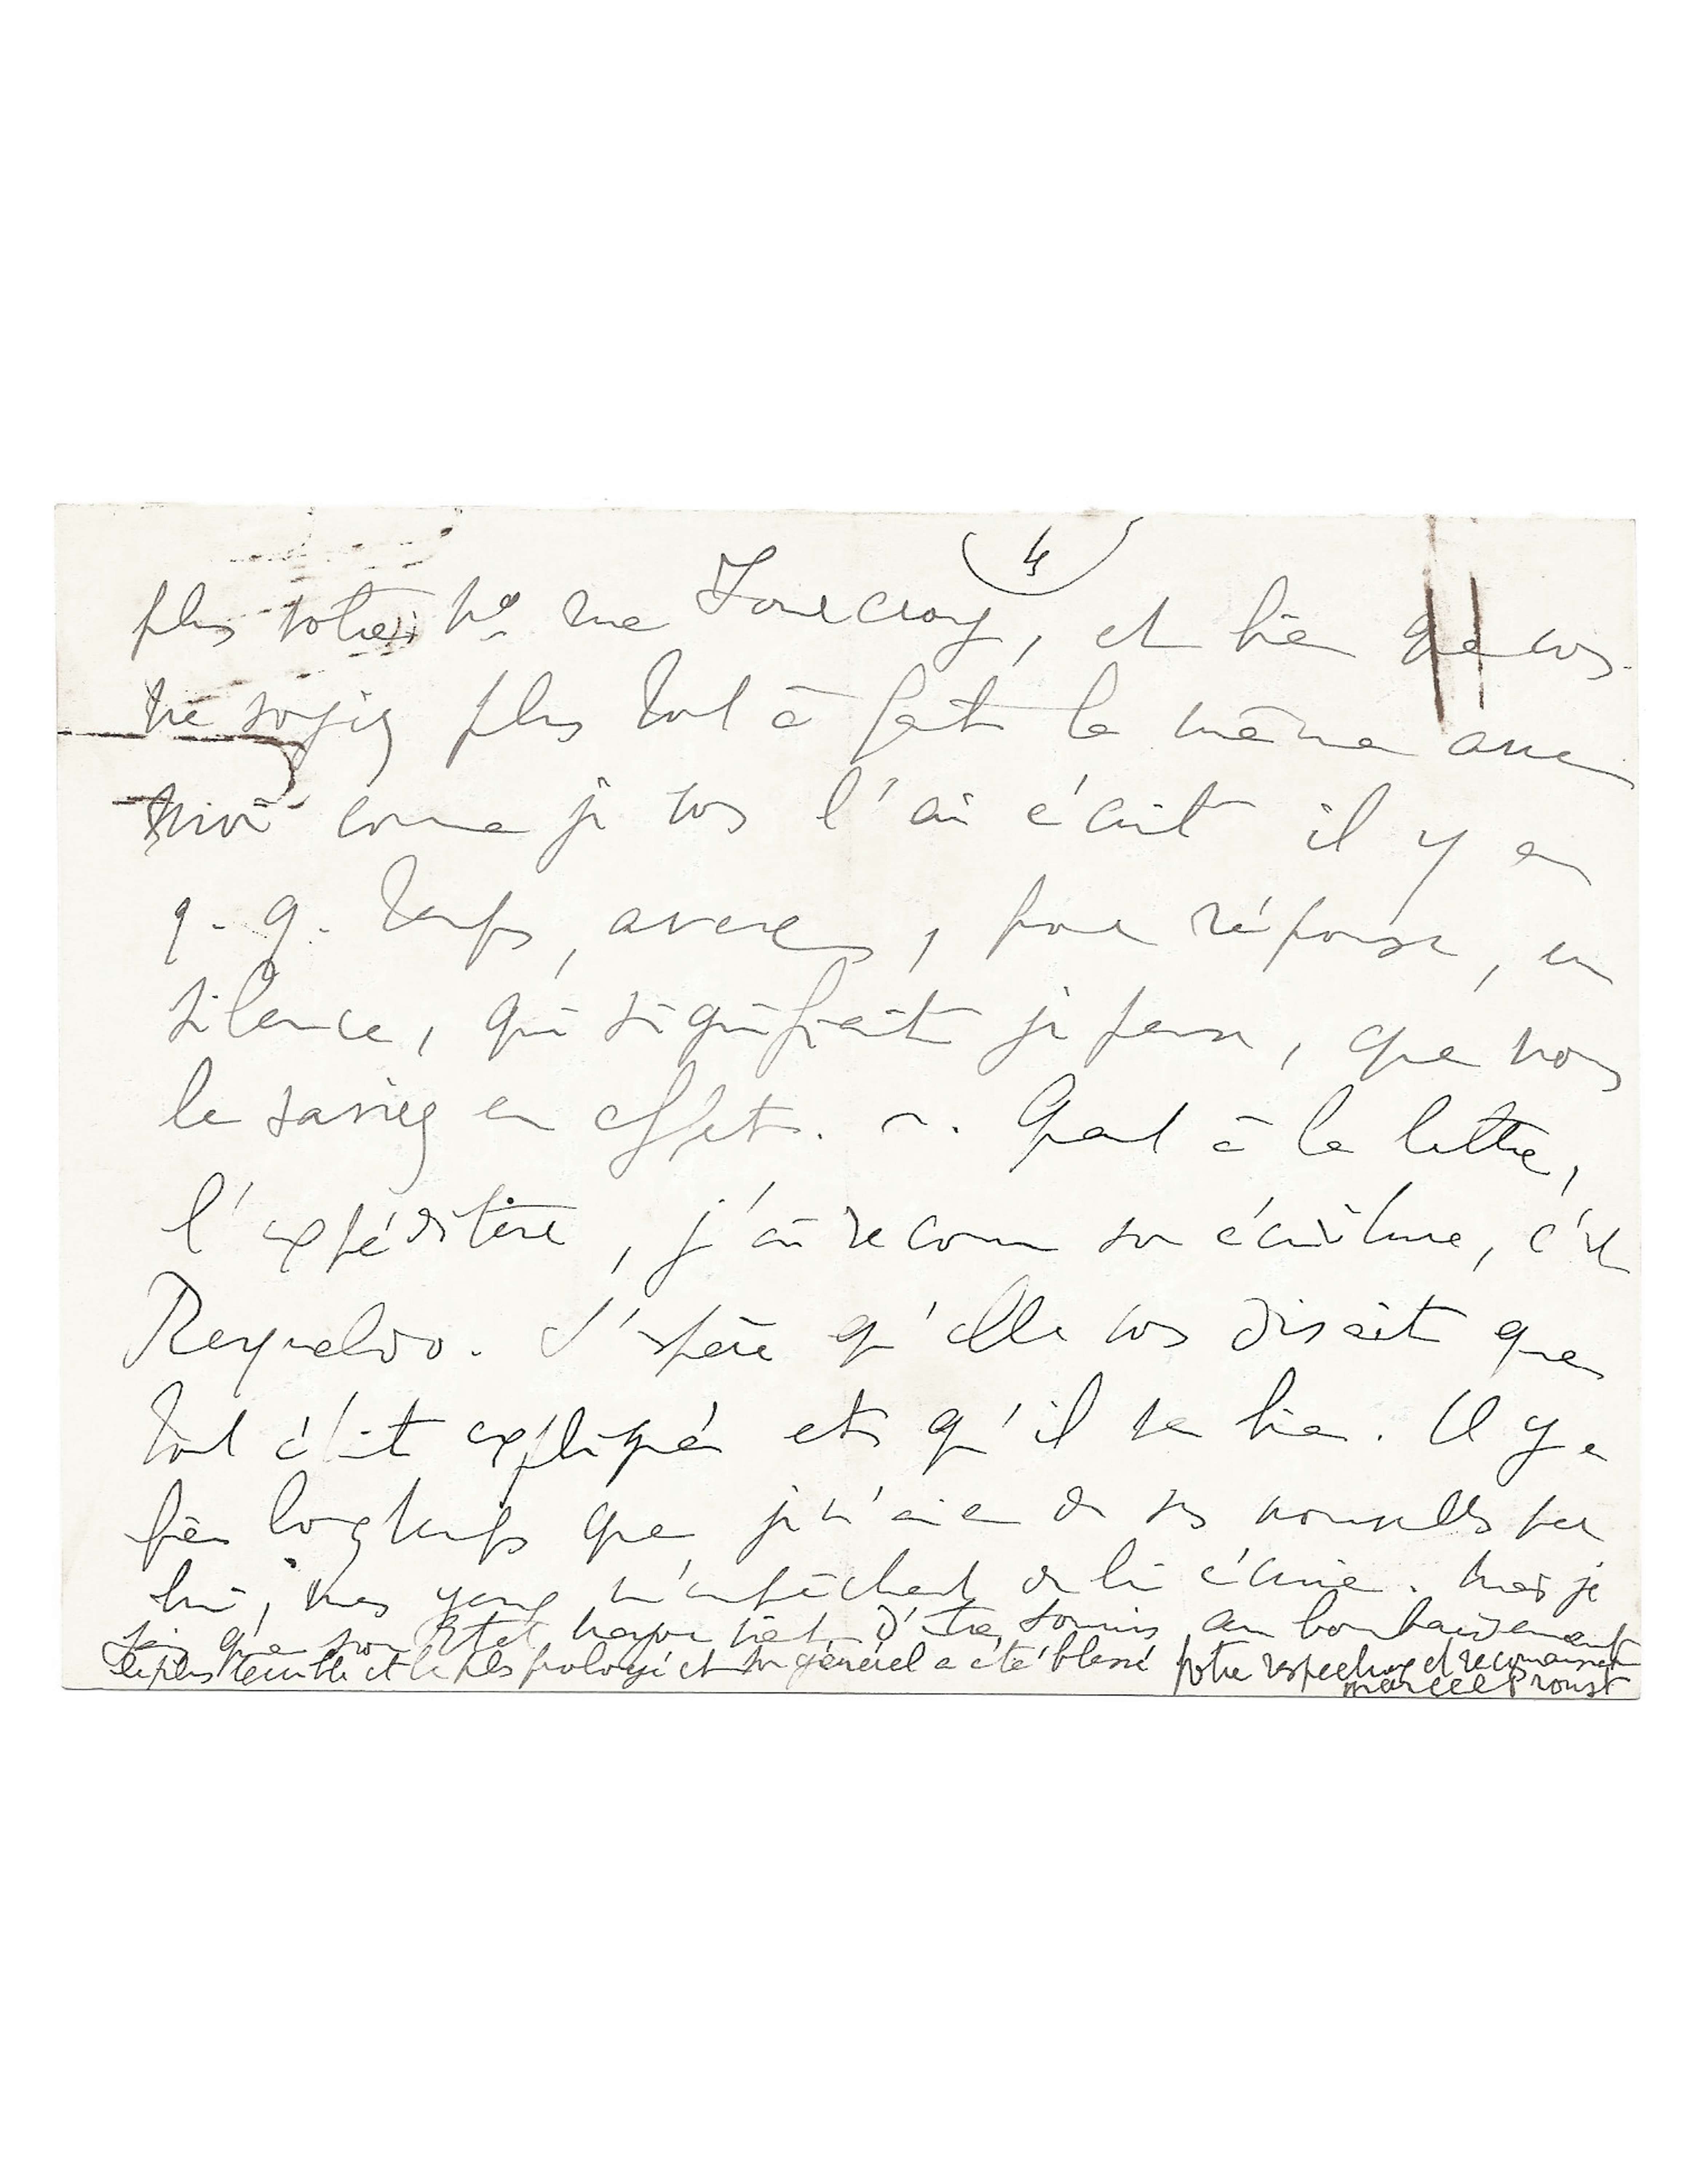 4
plus votre no rue Fourcroy, et bien que vous
ne soyez plus tout à fait la même avec
moi comme je vous l'ai écrit il y en
q.q. temps, avec, pour réponse, un
silence, qui signifiait je pense, que vous
le saviez en effet. Quant à la lettre,
l'expéditeur, j'ai reconnu son écriture, c'est
Reynaldo. J'espère qu'elle vous disait que
tout était expliqué et qu'il va bien. Il y a
bien longtemps que je n'ai eu de ses nouvelles par
lui, mes yeux m'empêchent de lui écrire. Mais je
sais que son Etat major vient d'être soumis au bombardement
le plus terrible et le plus prolongé et son général a été blessé Votre respectueux et reconnaissant
Marcel Proust